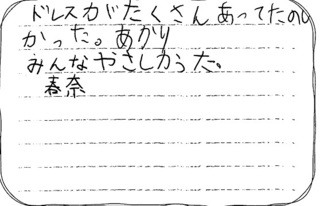 ドレスがたくさんあってたのし
かった。あかり
みんなやさしかった。
春奈